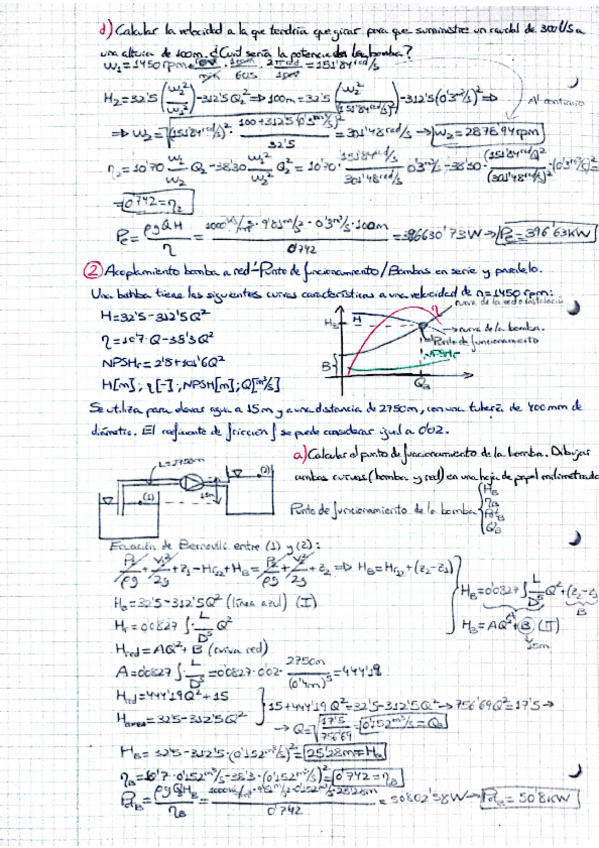 d) Calcular la velocidad a la que tendría que girar para que suministre un caudal de 300 l/s a
una altura de 100m. ¿Cuál sería la potencia de la bomba?
W₁=1450 rpm · 1min/60s · 2πrad/1rev =151'84 rad/s
H₂=32'5(W₂²/W₁²)-312'5Q₂² ⇒ 100m=32'5(W₂²/(151'84 rad/s)²)-312'5(0'3m³/s)² ⇒ Al contrario
⇒ W₂=√((151'84 rad/s)² · (100+312'5(0'3m³/s)²)/32'5) =301'48 rad/s → W₂=2878'94rpm
η₂=10'70 W₁/W₂ Q₂-38'30 W₁²/W₂² Q₂²=10'70· 151'84 rad/s / 301'48 rad/s · 0'3m³/s-38'30· (151'84 rad/s)²/(301'48 rad/s)² ·(0'3m³/s)²=
=0'742=η₂
Pe= ρgQH/η = 1000 kg/m³·9'81m/s²·0'3m³/s·100m / 0'742 =396630'73W → Pe=396'63KW
② Acoplamiento bomba a red-Punto de funcionamiento/Bombas en serie y paralelo.
Una bomba tiene las siguientes curvas características a una velocidad de n=1450rpm:
H=32'5-312'5Q²
η=10'7·Q-38'3Q²
H[m]; η[-]; NPSH[m]; Q[m³/s]
H_B H η
curva de la bomba.
Punto de funcionamiento
B NPSHr
Q_B
Se utiliza para elevar agua a 15m y a una distancia de 2750m, con una tubería de 400mm de
diámetro. El coeficiente de fricción f se puede considerar igual a 0'02.
a) Calcular el punto de funcionamiento de la bomba. Dibujar
ambas curvas (bomba y red) en una hoja de papel milimetrada
L=2750m
(1) (2) 15m
Punto de funcionamiento de la bomba { H_B η_B Pot_B Q_B
Ecuación de Bernoulli entre (1) y (2):
P₁/ρg+V₁²/2g+z₁-Hr₁₂+H_B=P₂/ρg+V₂²/2g+z₂ ⇒ H_B=Hr₁₂+(z₂-z₁)
H_B=32'5-312'5Q² (línea azul) (I)
H_B=0'0827 f L/D⁵ Q²+(z₂-z₁)
B
Hr=0'0827 f· L/D⁵ Q²
H_B=AQ²+B (II)
15m
Hred=AQ²+B (curva red)
A=0'0827 f· L/D⁵ =0'0827·0'02· 2750m/(0'4m)⁵ =444'19
Hred=444'19Q²+15
15+444'19Q²=32'5-312'5Q² → 756'69Q²=17'5 →
=32'5-312'5Q²
→ Q=√(17'5/756'69) =0'152m³/s=Q_B
H_B=32'5-312'5·(0'152m³/s)²=25'28m=H_B
η_B=10'7·0'152m³/s-38'3·(0'152m³/s)²=0'742=η_B
Pot_B= ρgQH_B/η_B = 1000 kg/m³·9'81m/s²·0'152m³/s·25'28m / 0'742 =50802'58W → Pot_B=50'8KW